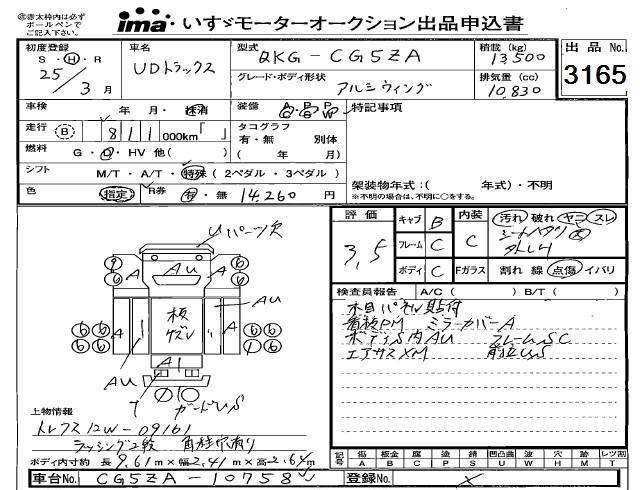 ㊟赤太枠内は必ず
ボールペンで
ご記入下さい。
ima いすゞモーターオークション出品申込書
初度登録 S・H・R 25/3月
車名 UDトラックス
型式 QKG-CG5ZA
グレード・ボディ形状 アルミウィング
積載 (kg) 13500
排気量 (cc) 10,830
出品 No. 3165
車検 年 月・抹消
装備 A/C P/S P/W
特記事項
走行 (B) 811 000km「 」
タコグラフ 有・無 別体
( 年 月)
燃料 G・D・HV 他( )
シフト M/T・A/T・特殊 (2ペダル・3ペダル)
架装物年式:( 年式)・不明
※不明の場合は、不明に○をする。
色 指定 R券 有・無 14,260 円
評価 3.5
キャブ B
フレーム C
ボディ C
内装 C
Fガラス
汚れ 破れ ヤニ スレ
割れ 線 点傷 イバリ
検査員報告 A/C( ) B/T( )
木目パネル貼付
看板PM ミラーカバーA
ボディS内AU フレームSC
エアサスXM
Uパーツ欠
A AU A
板 ゲズレ
AU
A A
AU
A1
ガードU,S
上物情報
トレクス12W-09161
ラッシング2段 角柱穴有り
ボディ内寸約 長9.61m×幅2.41m×高2.64m
車台No. CG5ZA-10758
登録No. ×
記号 傷A 板金B 腐C 塗P 錆S 凹凸曲U 波W 穴H 跡M 雨T レツ割